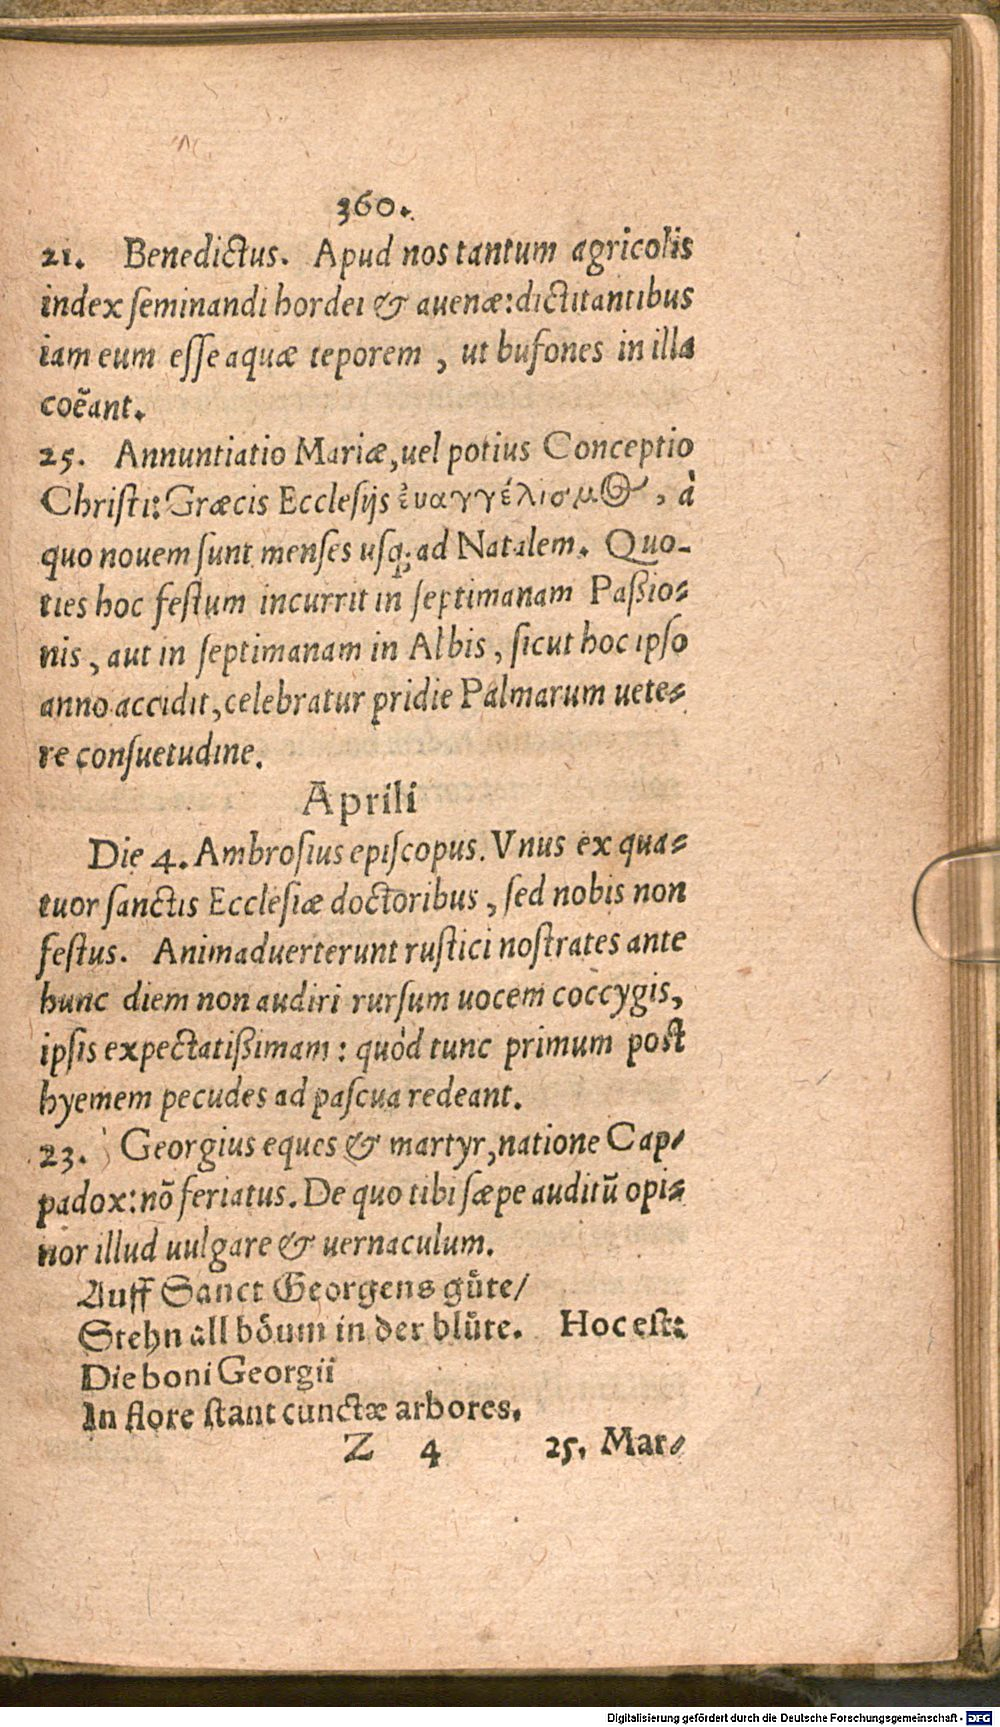 360.
21. Benedictus. Apud nos tantum agricolis
index ſeminandi hordei & auenæ: dictitantibus
iam eum eſſe aquæ teporem, ut bufones in illa
coẽant.
25. Annuntiatio Mariæ, uel potius Conceptio
Chriſti: Græcis Eccleſijs ἐυαγγέλισμὸς, à
quo nouem ſunt menſes uſq; ad Natalem. Quo-
ties hoc feſtum incurrit in ſeptimanam Paßio-
nis, aut in ſeptimanam in Albis, ſicut hoc ipſo
anno accidit, celebratur pridie Palmarum uete-
re conſuetudine.
Aprili
Die 4. Ambroſius epiſcopus. Vnus ex qua-
tuor ſanctis Eccleſiæ doctoribus, ſed nobis non
feſtus. Animaduerterunt ruſtici noſtrates ante
hunc diem non audiri rurſum uocem coccygis,
ipſis expectatißimam: quòd tunc primum poſt
hyemem pecudes ad paſcua redeant.
23. Georgius eques & martyr, natione Cap-
padox: nõ feriatus. De quo tibi ſæpe auditũ opi-
nor illud uulgare & uernaculum.
Auff Sanct Georgens guͤte/
Stehn all boͤum in der bluͤte. Hoc eſt:
Die boni Georgii
In flore ſtant cunctæ arbores.
Z 4 25. Mar-
Digitalisierung gefördert durch die Deutsche Forschungsgemeinschaft - DFG